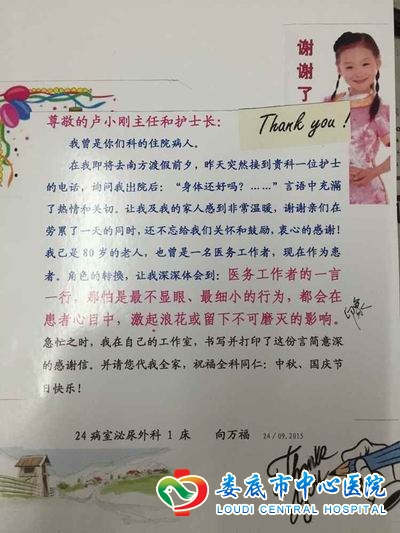 谢谢了
尊敬的卢小刚主任和护士长：
Thank you!
我曾是你们科的住院病人。
在我即将去南方渡假前夕，昨天突然接到贵科一位护士
的电话，询问我出院后：“身体还好吗？……”言语中充满
了热情和关切。让我及我的家人感到非常温暖，谢谢亲们在
劳累了一天的同时，还不忘给我们关怀和鼓励，衷心的感谢！
我已是 80 岁的老人，也曾是一名医务工作者，现在作为患
者。角色的转换，让我深深体会到：医务工作者的一言
一行，那怕是最不显眼、最细小的行为，都会在
患者心目中，激起浪花或留下不可磨灭的影响。
急忙之时，我在自己的工作室，书写并打印了这份言简意深
的感谢信。并请您代我全家，祝福全科同仁：中秋、国庆节
日快乐！
24 病室泌尿外科 1 床 向万福 24/09.2015
Thanks
娄底市中心医院
LOUDI CENTRAL HOSPITAL